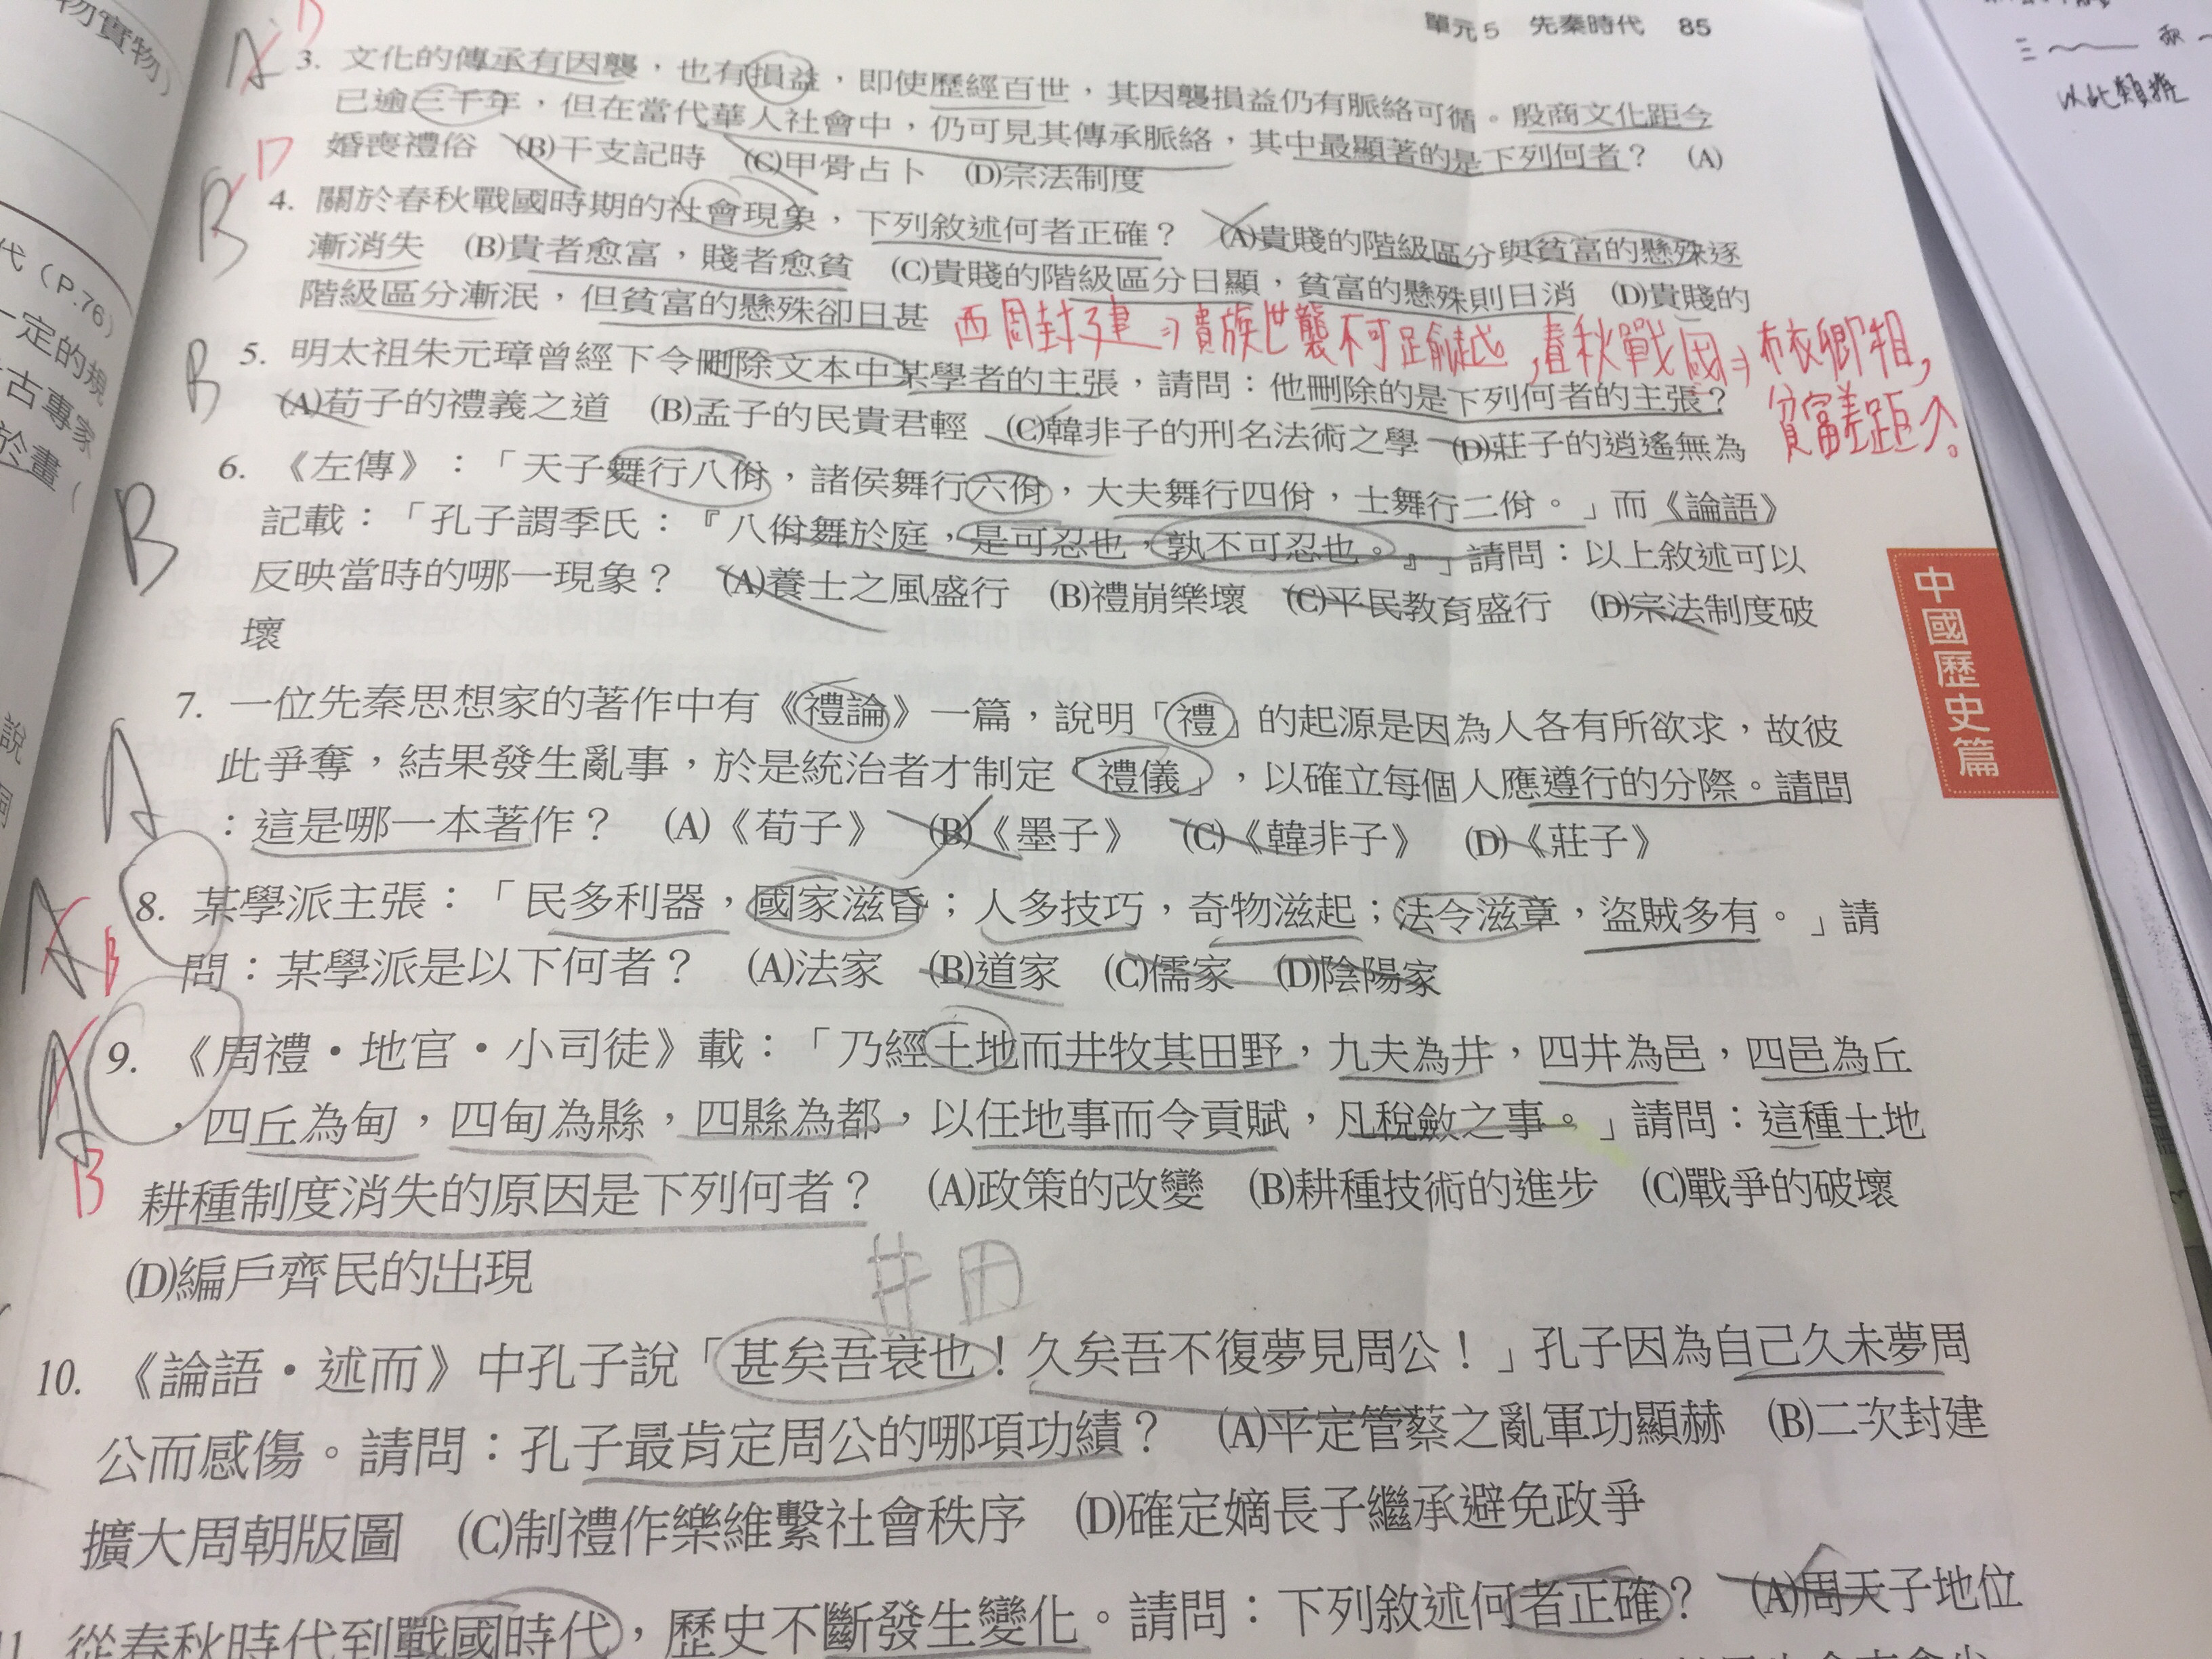 單元5 先秦時代 85
3. 文化的傳承有因襲，也有損益，即使歷經百世，其因襲損益仍有脈絡可循。殷商文化距今
已逾三千年，但在當代華人社會中，仍可見其傳承脈絡，其中最顯著的是下列何者？ (A)
婚喪禮俗 (B)干支記時 (C)甲骨占卜 (D)宗法制度
4. 關於春秋戰國時期的社會現象，下列敘述何者正確？ (A)貴賤的階級區分與貧富的懸殊逐
漸消失 (B)貴者愈富，賤者愈貧 (C)貴賤的階級區分日顯，貧富的懸殊則日消 (D)貴賤的
階級區分漸泯，但貧富的懸殊卻日甚
西周封建⇒貴族世襲不可踰越，春秋戰國⇒布衣卿相，
貧富差距大。
5. 明太祖朱元璋曾經下令刪除文本中某學者的主張，請問：他刪除的是下列何者的主張？
(A)荀子的禮義之道 (B)孟子的民貴君輕 (C)韓非子的刑名法術之學 (D)莊子的逍遙無為
6. 《左傳》：「天子舞行八佾，諸侯舞行六佾，大夫舞行四佾，士舞行二佾。」而《論語》
記載：「孔子謂季氏：『八佾舞於庭，是可忍也，孰不可忍也。』」請問：以上敘述可以
反映當時的哪一現象？ (A)養士之風盛行 (B)禮崩樂壞 (C)平民教育盛行 (D)宗法制度破
壞
7. 一位先秦思想家的著作中有《禮論》一篇，說明「禮」的起源是因為人各有所欲求，故彼
此爭奪，結果發生亂事，於是統治者才制定「禮儀」，以確立每個人應遵行的分際。請問
：這是哪一本著作？ (A)《荀子》 (B)《墨子》 (C)《韓非子》 (D)《莊子》
8. 某學派主張：「民多利器，國家滋昏；人多技巧，奇物滋起；法令滋章，盜賊多有。」請
問：某學派是以下何者？ (A)法家 (B)道家 (C)儒家 (D)陰陽家
9. 《周禮・地官・小司徒》載：「乃經土地而井牧其田野，九夫為井，四井為邑，四邑為丘
，四丘為甸，四甸為縣，四縣為都，以任地事而令貢賦，凡稅斂之事。」請問：這種土地
耕種制度消失的原因是下列何者？ (A)政策的改變 (B)耕種技術的進步 (C)戰爭的破壞
(D)編戶齊民的出現
井田
10. 《論語・述而》中孔子說「甚矣吾衰也！久矣吾不復夢見周公！」孔子因為自己久未夢周
公而感傷。請問：孔子最肯定周公的哪項功績？ (A)平定管蔡之亂軍功顯赫 (B)二次封建
擴大周朝版圖 (C)制禮作樂維繫社會秩序 (D)確定嫡長子繼承避免政爭
11. 從春秋時代到戰國時代，歷史不斷發生變化。請問：下列敘述何者正確？ (A)周天子地位
中國歷史篇
A D
B D
B
B
A
A B
A B
物實物）
代（P.76）
一定的規
古專家
於畫（
說
以此類推